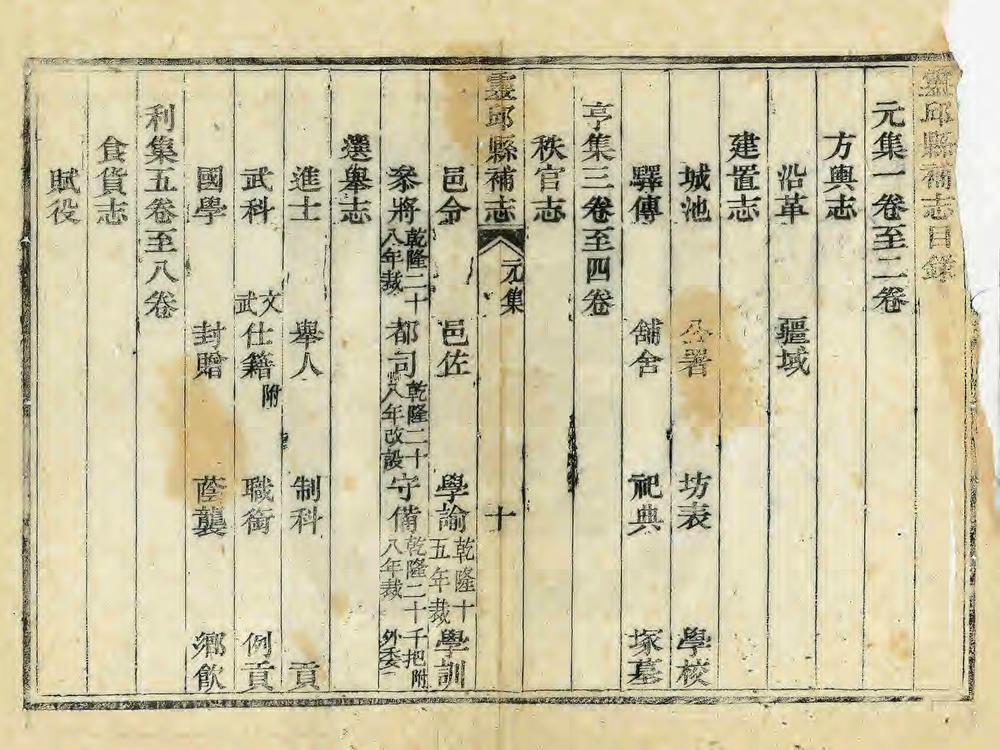 靈邱縣補志目錄
元集一卷至二卷
方輿志
沿革 疆域
建置志
城池 公署 坊表 學校
驛傳 舖舍 祀典 塚墓
亨集三卷至四卷
秩官志
靈邱縣補志 元集 十
邑令 邑佐 學諭乾隆十五年裁 學訓
叅將乾隆二十八年裁 都司乾隆二十八年改設 守備乾隆二十八年裁 千把外委附
選舉志
進士 舉人 制科 貢
武科 文武仕籍附 職銜 例貢
國學 封贈 蔭襲 鄉飲
利集五卷至八卷
食貨志
賦役